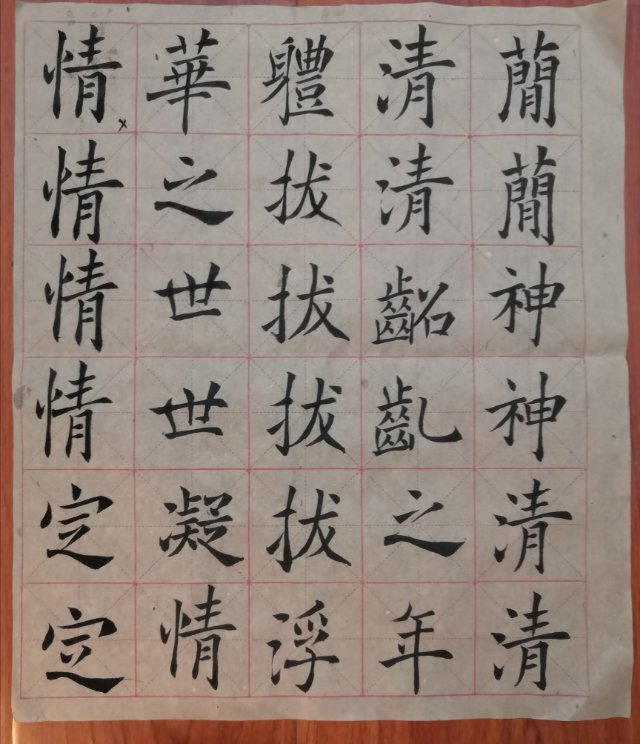 簡簡神神清清
清清齠齓之年
體拔拔拔拔浮
華之世世凝情
情情情情定定